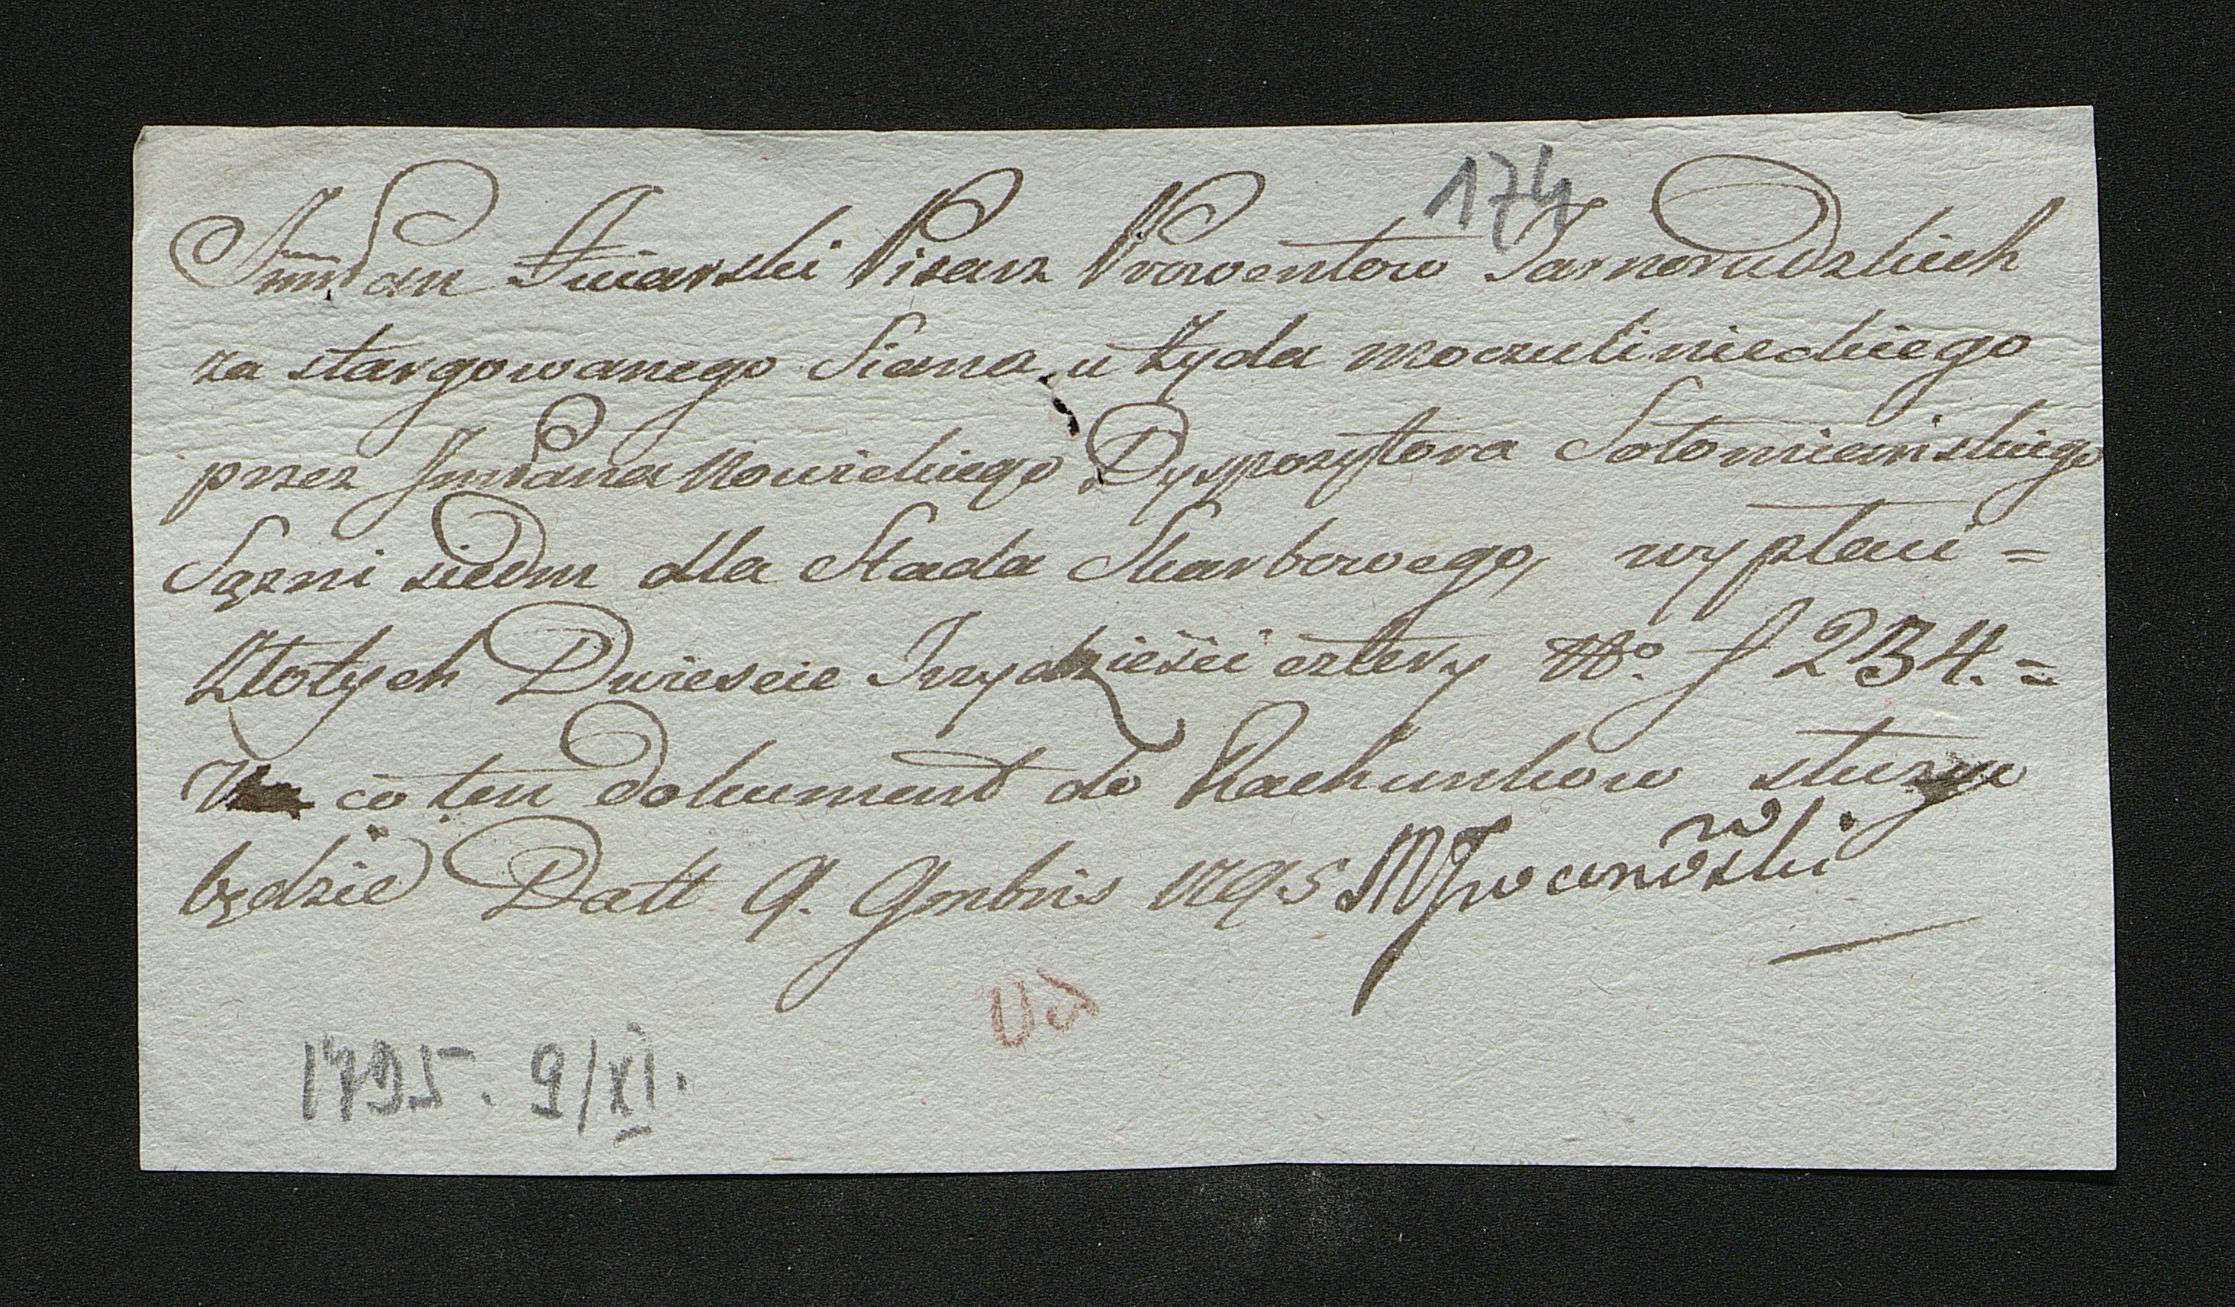 174
Jmć Pan Pisarz Prowentow Tarnorudzkich
za stargowanego Siana u Żyda moczulinieckiego
przez Jmć Pana Nowickiego Dyspozytora
Sązni siedm dla Stada Skarbowego, wypłaci =
Złotych Dwieście Trzydzieści cztery No. f 234. =
Na co ten Dokument do Rachunkow służyc
będzie Datt 9. 9mbris 1795
1795. 9/XI.